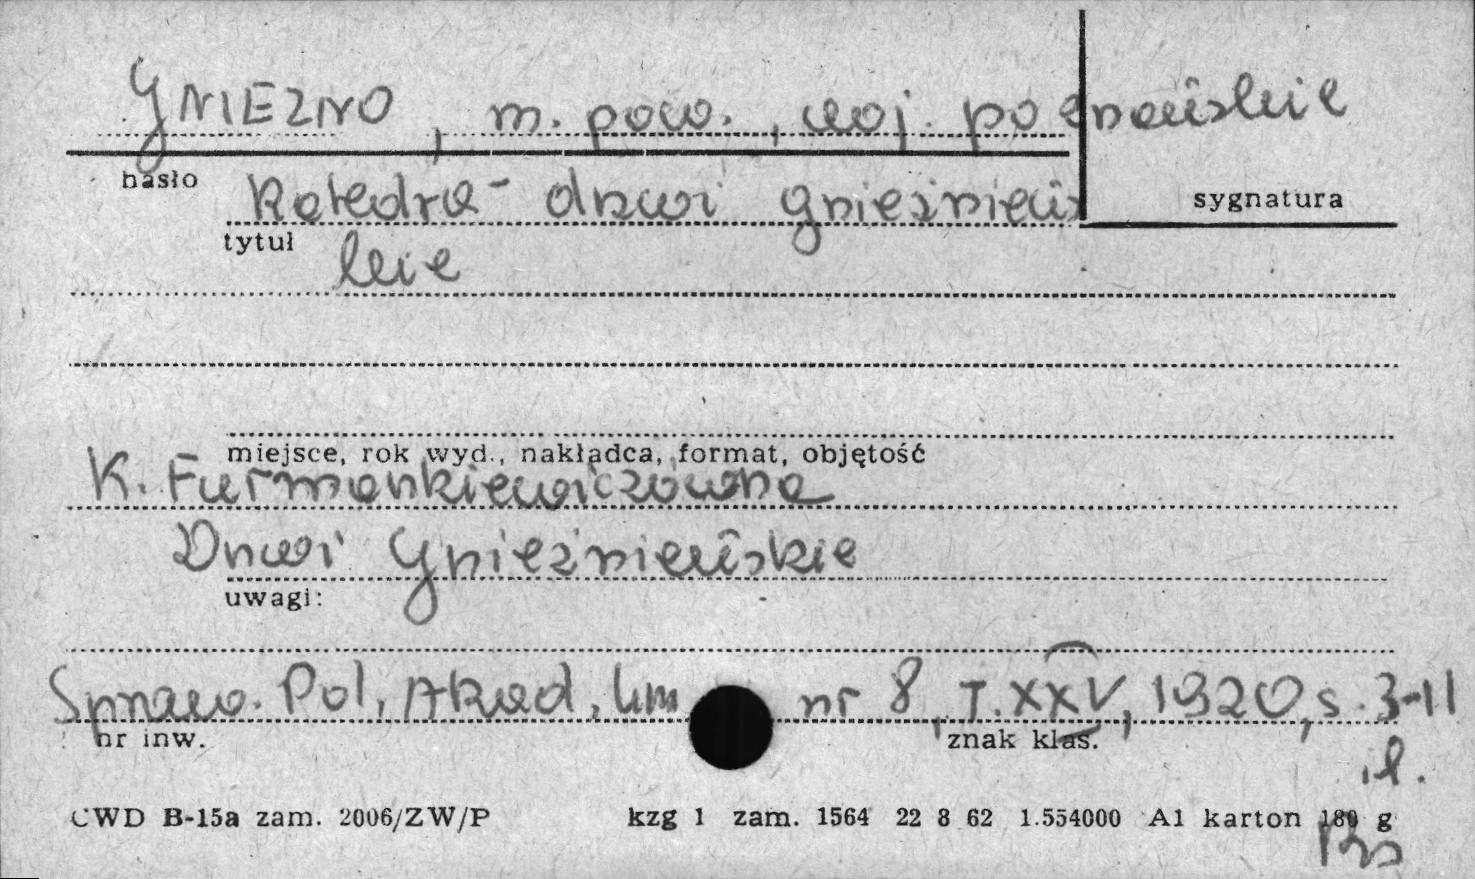 GNIEZNO, m. pow., woj. poznańskie
hasło
sygnatura
Katedra - drzwi gnieźnieńs
tytuł
kie
miejsce, rok wyd., nakładca, format, objętość
K. Furmankiewiczówna
Drzwi Gnieźnieńskie
uwagi:
Spraw. Pol. Akad. Um. nr 8, T. XXV, 1920, s. 3-11
nr inw.
znak klas.
il.
CWD B-15a zam. 2006/ZW/P kzg 1 zam. 1564 22 8 62 1.554000 A1 karton 180 g